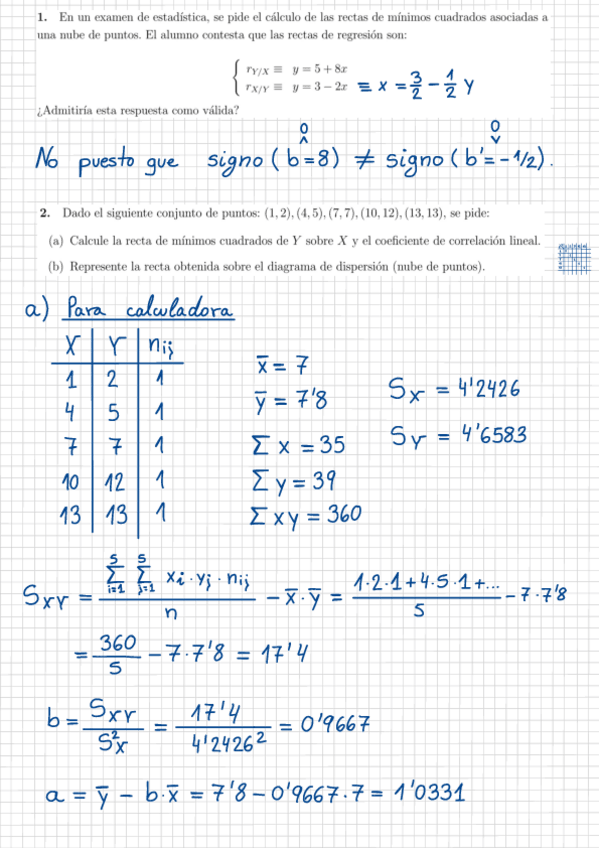 1. En un examen de estadística, se pide el cálculo de las rectas de mínimos cuadrados asociadas a
una nube de puntos. El alumno contesta que las rectas de regresión son:
{ r_{Y/X} ≡ y = 5 + 8x
r_{X/Y} ≡ y = 3 − 2x ≡ x = 3/2 − 1/2 y
¿Admitiría esta respuesta como válida?
0 0
^ v
No puesto que signo (b=8) ≠ signo (b'=-1/2).
2. Dado el siguiente conjunto de puntos: (1, 2), (4, 5), (7, 7), (10, 12), (13, 13), se pide:
(a) Calcule la recta de mínimos cuadrados de Y sobre X y el coeficiente de correlación lineal.
(b) Represente la recta obtenida sobre el diagrama de dispersión (nube de puntos).
a) Para calculadora
X | Y | nij
1 | 2 | 1
4 | 5 | 1
7 | 7 | 1
10 | 12 | 1
13 | 13 | 1
x̄ = 7
ȳ = 7'8
Σ x = 35
Σ y = 39
Σ xy = 360
Sx = 4'2426
Sy = 4'6583
Sxy = (5Σi=1 5Σj=1 xi · yj · nij)/n − x̄ · ȳ = (1·2·1+4·5·1+...)/5 − 7·7'8
= 360/5 − 7·7'8 = 17'4
b = Sxy/S²x = 17'4/4'2426² = 0'9667
a = ȳ − b·x̄ = 7'8 − 0'9667·7 = 1'0331